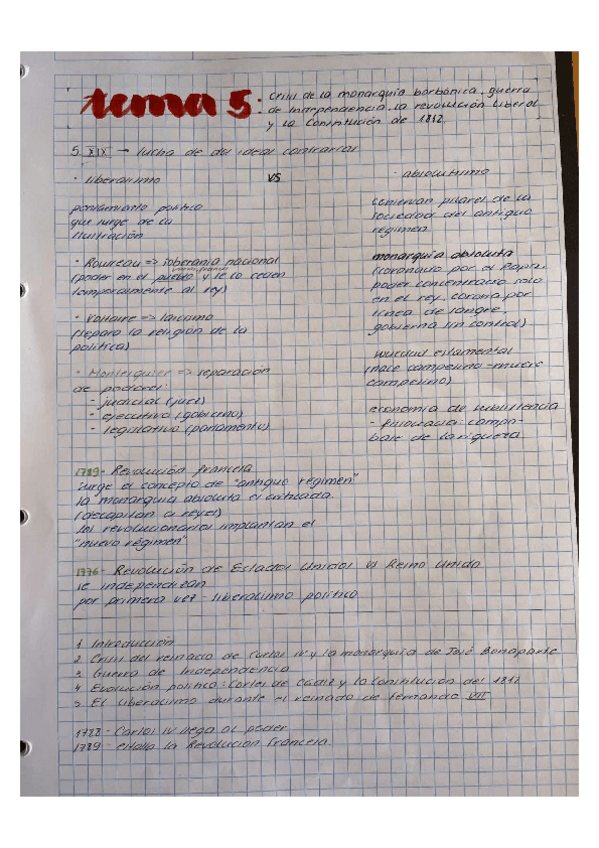 tema 5: Crisis de la monarquía borbónica, guerra
de Independencia, la revolución liberal
y la Constitución de 1812
S. XIX → lucha de dos ideas contrarias
· liberalismo vs · absolutismo
pensamiento político
que surge de la
Ilustración
· Rousseau => soberanía nacional
(poder en el pueblo y se lo ceden
temporalmente al rey)
· Voltaire => laicismo
(separa la religión de la
política)
· Montesquieu => separación
de poderes:
- judicial (juez)
- ejecutivo (gobierno)
- legislativo (parlamento)
conservan pilares de la
sociedad del antiguo
régimen
monarquía absoluta
(coronado por el Papa,
poder concentrado solo
en el rey, corona por
línea de sangre,
gobierna sin control)
sociedad estamental
(nace campesino = muere
campesino)
economía de subsistencia
- fisiocracia: campo =
base de la riqueza
1789 - Revolución francesa
surge el concepto de "antiguo régimen"
la monarquía absoluta es criticada
(decapitan a reyes)
los revolucionarios implantan el
"nuevo régimen"
1776 - Revolución de Estados Unidos vs Reino Unido
se independizan
por primera vez - liberalismo político
1. Introducción
2. Crisis del reinado de Carlos IV y la monarquía de José Bonaparte
3. Guerra de Independencia
4. Evolución política: Cortes de Cádiz y la Constitución del 1812
5. El liberalismo durante el reinado de Fernando VII
1788 - Carlos IV llega al poder
1789 - estalla la Revolución Francesa